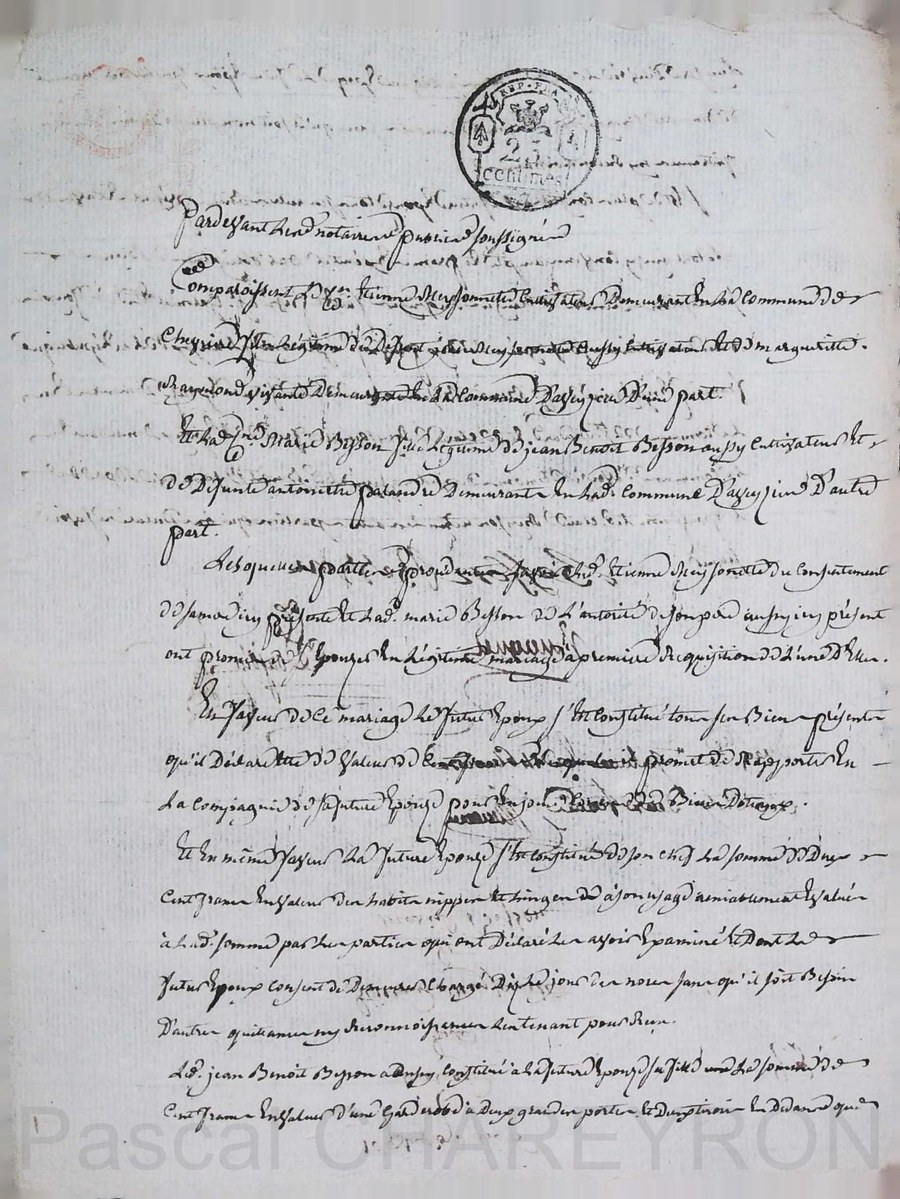 REP. FRA.
25
centimes
Pardevant Le notaire public soussigné
Comparoissent Le Cen Etienne Meyssonette Cultivateur Demeurant En La Commune de
fils Légitime de Défunt aussy Cultivateur Et de marguerite
Raymond vivante Demeurante En La Commune D'une part.
Et La Cne Marie Besson fille Légitime de jean Benoit Besson aussy Cultivateur Et
de Défunte antoinette Demeurante En Lad. Commune D'autre
part.
Lesquelles parties Led. Etienne Meyssonette du Consentement
de sa mere icy présente Et Lad. marie Besson de L'autorité de son père aussy icy présent
ont promis de S'Epouzer En Légitime mariage a première Réquisition de L'une D'Elles.
En faveur de Ce mariage Le futur Epoux s'Est Constitué tous ses Biens présents
qu'il Déclare Etre de Valeur de promet de Rapporter En
La Compagnie de sa future Epouze pour En jouir Biens Dotaux.
Et En même faveur La future Epouze s'Est Constituée de son Chef La somme de Deux
Cent francs En Valeur des habits nippes Et Linges de à son usage amiablement Evalués
à Lad. somme par Les parties qui ont Déclaré Les avoir Examiné Et Dont Le
futur Epoux Consent de Demeurer Chargé Dès Le jour des noces sans qu'il soit Besoin
D'autre quittance ny Reconnoissance Les tenant pour Reçu.
Led. jean Benoit Besson a Constitué à La future Epouze sa fille La somme de
Cent francs En Valeur d'une Garderobe à Deux grandes portes Et Deux tiroirs En Dedans que
Pascal CHAREYRON